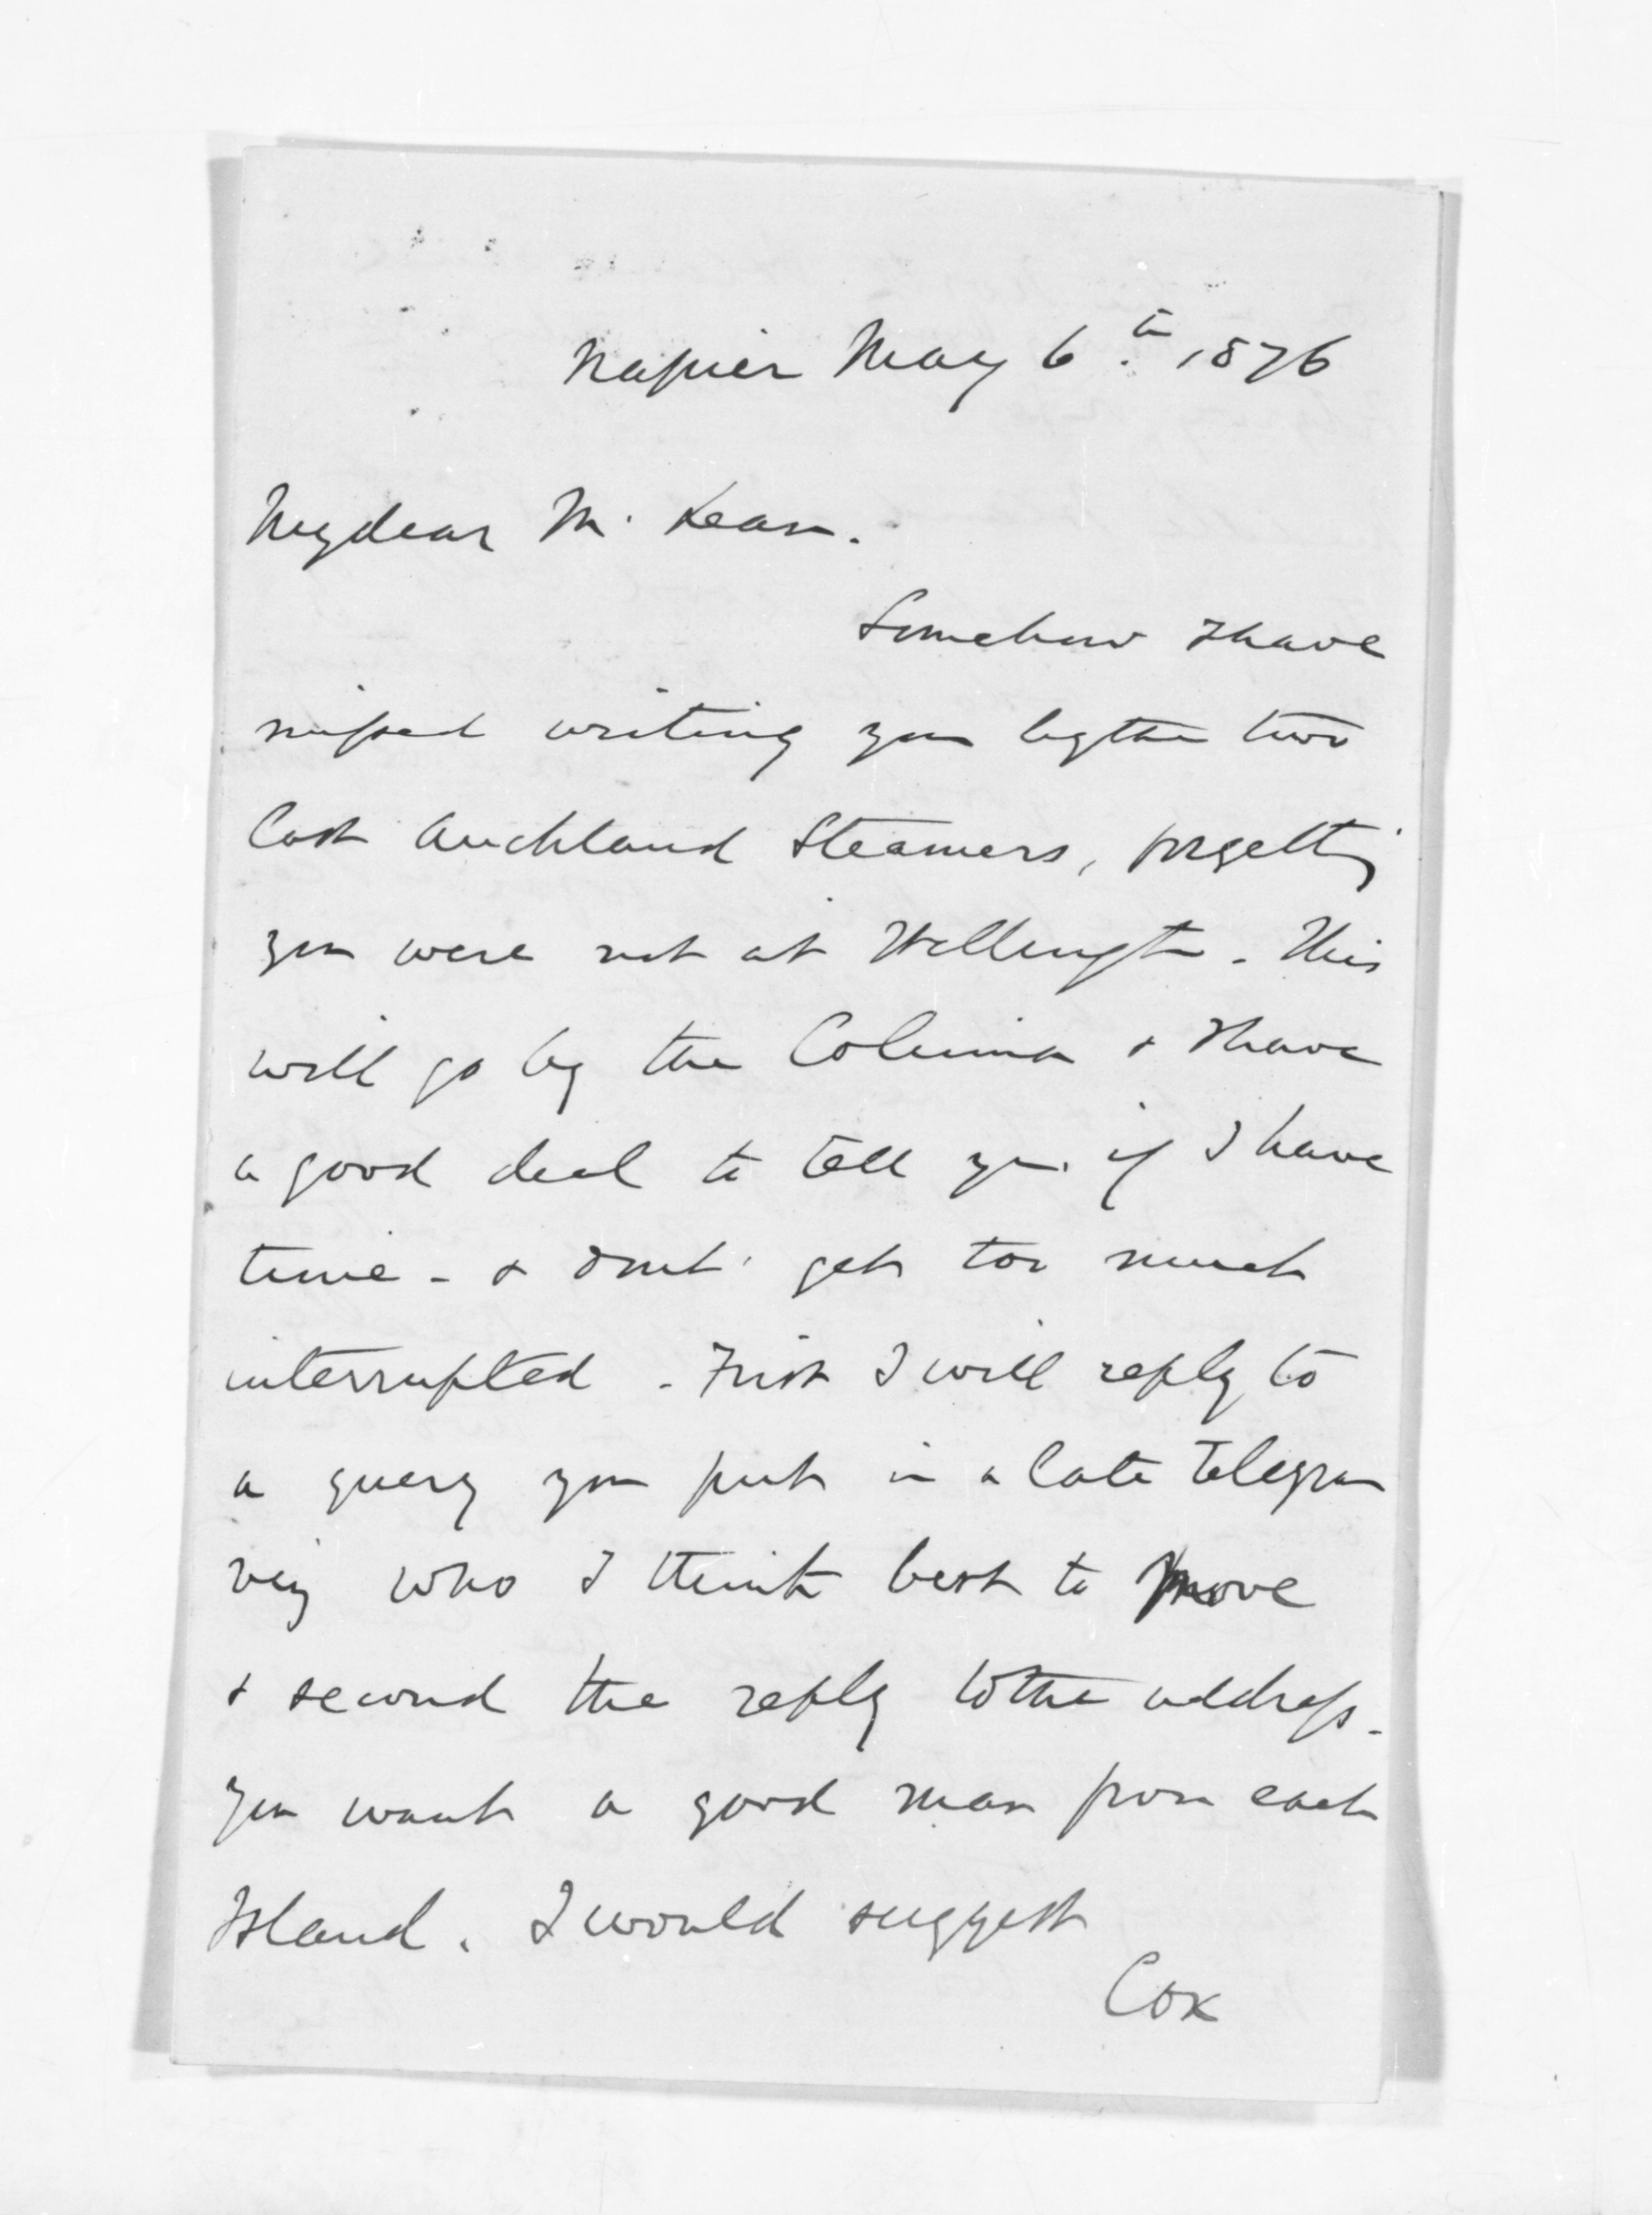 Napier May 6th. 1876
My dear McLean.
Somehow I have
missed writing you by the two
last Auckland Steamers, forgetting
you were not at Wellington. This
will go by the Colima & I have
a good deal to tell you if I have
time - & dont get too much
interrupted - First I will reply to
a query you put in a late Telegram
viz who I think best to move
& second the reply to the address -
you want a good man from each
Island. I would suggest
Cox